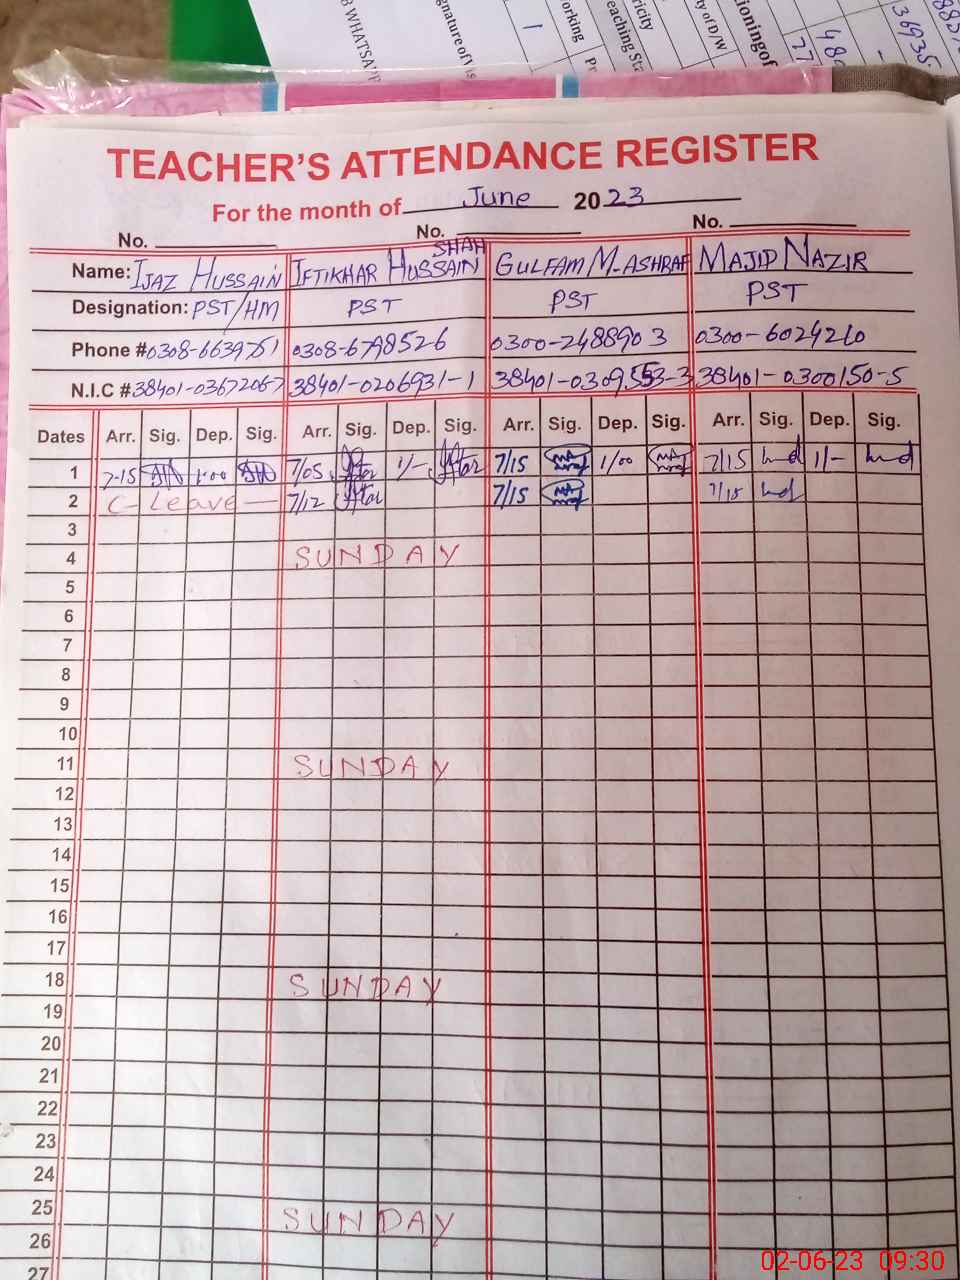 B WHATSAP
gnature of vis
1
orking
Pr
ricity
eaching Sta
y of D/W
tioning of
TEACHER'S ATTENDANCE REGISTER
For the month of June 2023
No. No. No.
Name: IJAZ HUSSAIN IFTIKHAR HUSSAIN SHAH GULFAM M. ASHRAF MAJID NAZIR
Designation: PST/HM PST PST PST
Phone # 0308-6639751 0308-6798526 0300-2488903 0300-6024210
N.I.C # 38401-0367206-7 38401-0206931-1 38401-0309553-3 38401-0300150-5
Dates Arr. Sig. Dep. Sig. Arr. Sig. Dep. Sig. Arr. Sig. Dep. Sig. Arr. Sig. Dep. Sig.
1 7-15 1:00 7/05 1/- 7/15 1/00 7/15 1/-
2 C- Leave — 7/12 7/15 7/15
3
4 SUNDAY
5
6
7
8
9
10
11 SUNDAY
12
13
14
15
16
17
18 SUNDAY
19
20
21
22
23
24
25 SUNDAY
26
27
02-06-23 09:30